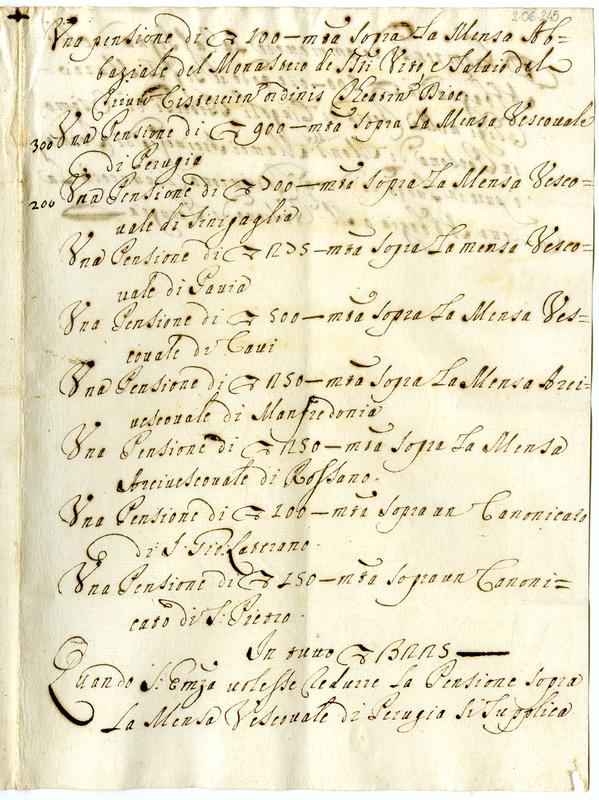 2.06.245
Una pensione di 200 — mta sopra La Mensa Ab=
baziale del Monastero de SSti Vito e Salvo del
Cistercien ordinis Theatin Dioc.
300 Una Pensione di 900 — mta sopra La Mensa Vescovale
di Perugia
200 Una Pensione di 700 — mta sopra La Mensa Vesco=
vale di Sinigaglia
Una Pensione di — mta sopra La mensa Vesco=
vale di Pavia
Una Pensione di 500 — mta sopra La Mensa Ves=
covale di Cavi
Una Pensione di 150 — mta sopra La Mensa Arci=
vescovale di Manfredonia
Una Pensione di 150 — mta sopra La Mensa
Arcivescovale di Rossano.
Una Pensione di 200 — mta sopra un Canonicato
di S. Gio: Laterano.
Una Pensione di 150 — mta sopra un Canoni=
cato di S: Pietro.
In tutto
Quando S: Emza volesse redurre La Pensione sopra
La Mensa Vescovale di Perugia si supplica